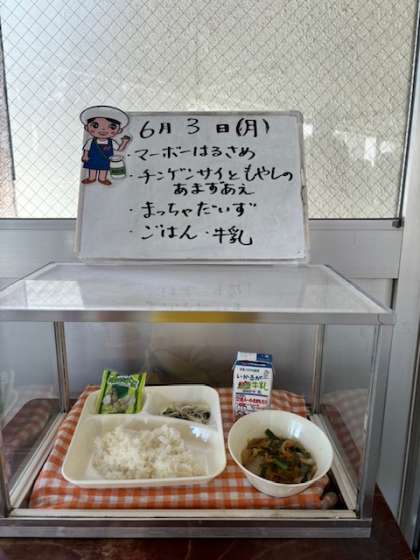 6月3日(月)
・マーボーはるさめ
・チンゲンサイともやしの
あまずあえ
・まっちゃだいず
・ごはん・牛乳
いかるが
牛乳